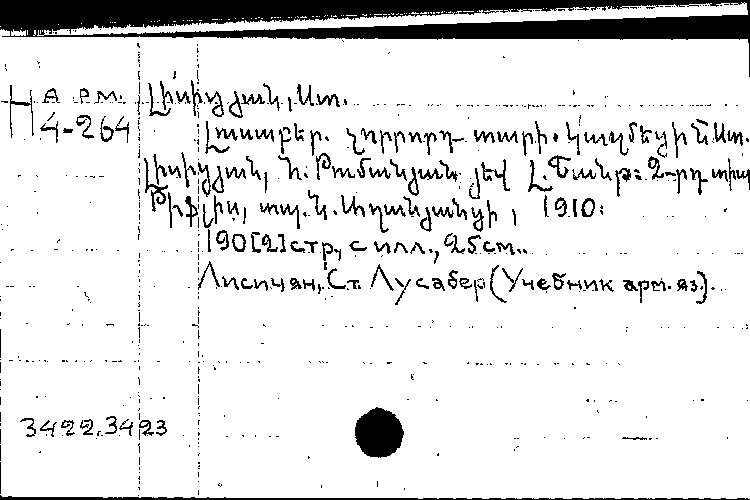 Н арм.
4-264
Լիսիցյան, Ստ.
Լուսաբեր. չորրորդ տարի. Կազմեցին Ստ.
Լիսիցյան, Հ. Թումանյան յեվ Լ. Շանթ: 2-րդ տիպ
Թիֆլիս, տպ. Ն. Աղանյանցի, 1910:
190[2] стр., с илл., 25 см.
Лисицян, Ст. Лусабер (Учебник арм. яз.).
3422.3423